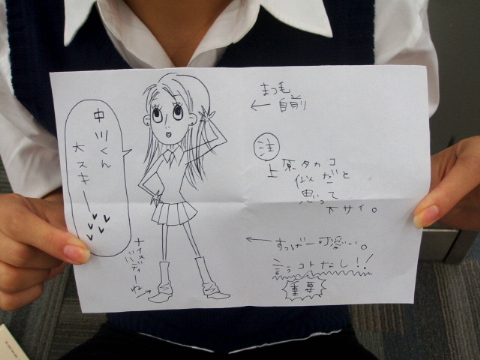 中川くん
大スキー
まつ毛
← 自前
注
上原タカコ
似だと
思って
下サイ。
← すっげー可愛い。
言うコトなし!!
重要